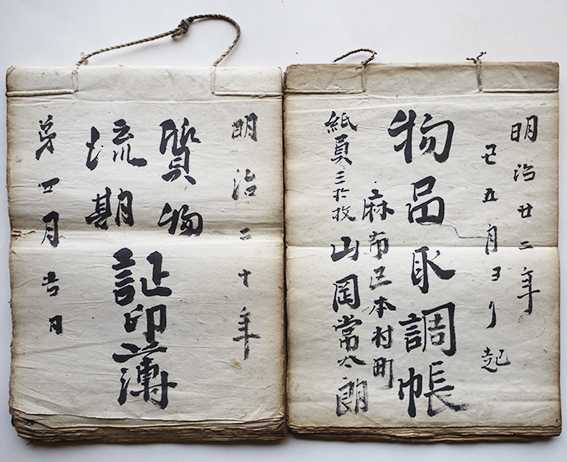 明治廿二年
丑五月ヨリ起
物品取調帳
麻布区本村町
山岡常太郎
紙員三拾枚
明治二十年
質物
流期
証印簿
第四月吉日